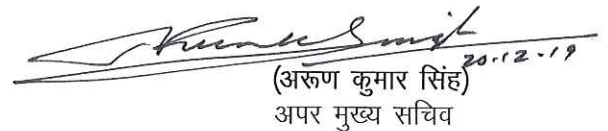 20-12-19
(अरूण कुमार सिंह)
अपर मुख्य सचिव